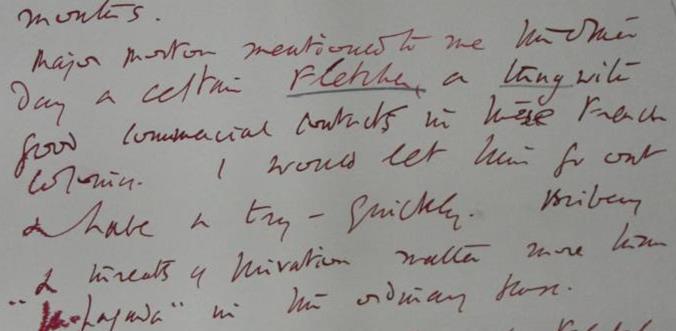 months.
Major Morton mentioned to me the other
Day a certain Fletcher, a thug with
good commercial contacts in these French
Colonies. I would let him go out
& have a try - Quickly. Bribery
& threats of privation matter more than
"Propaganda" in the ordinary sense.